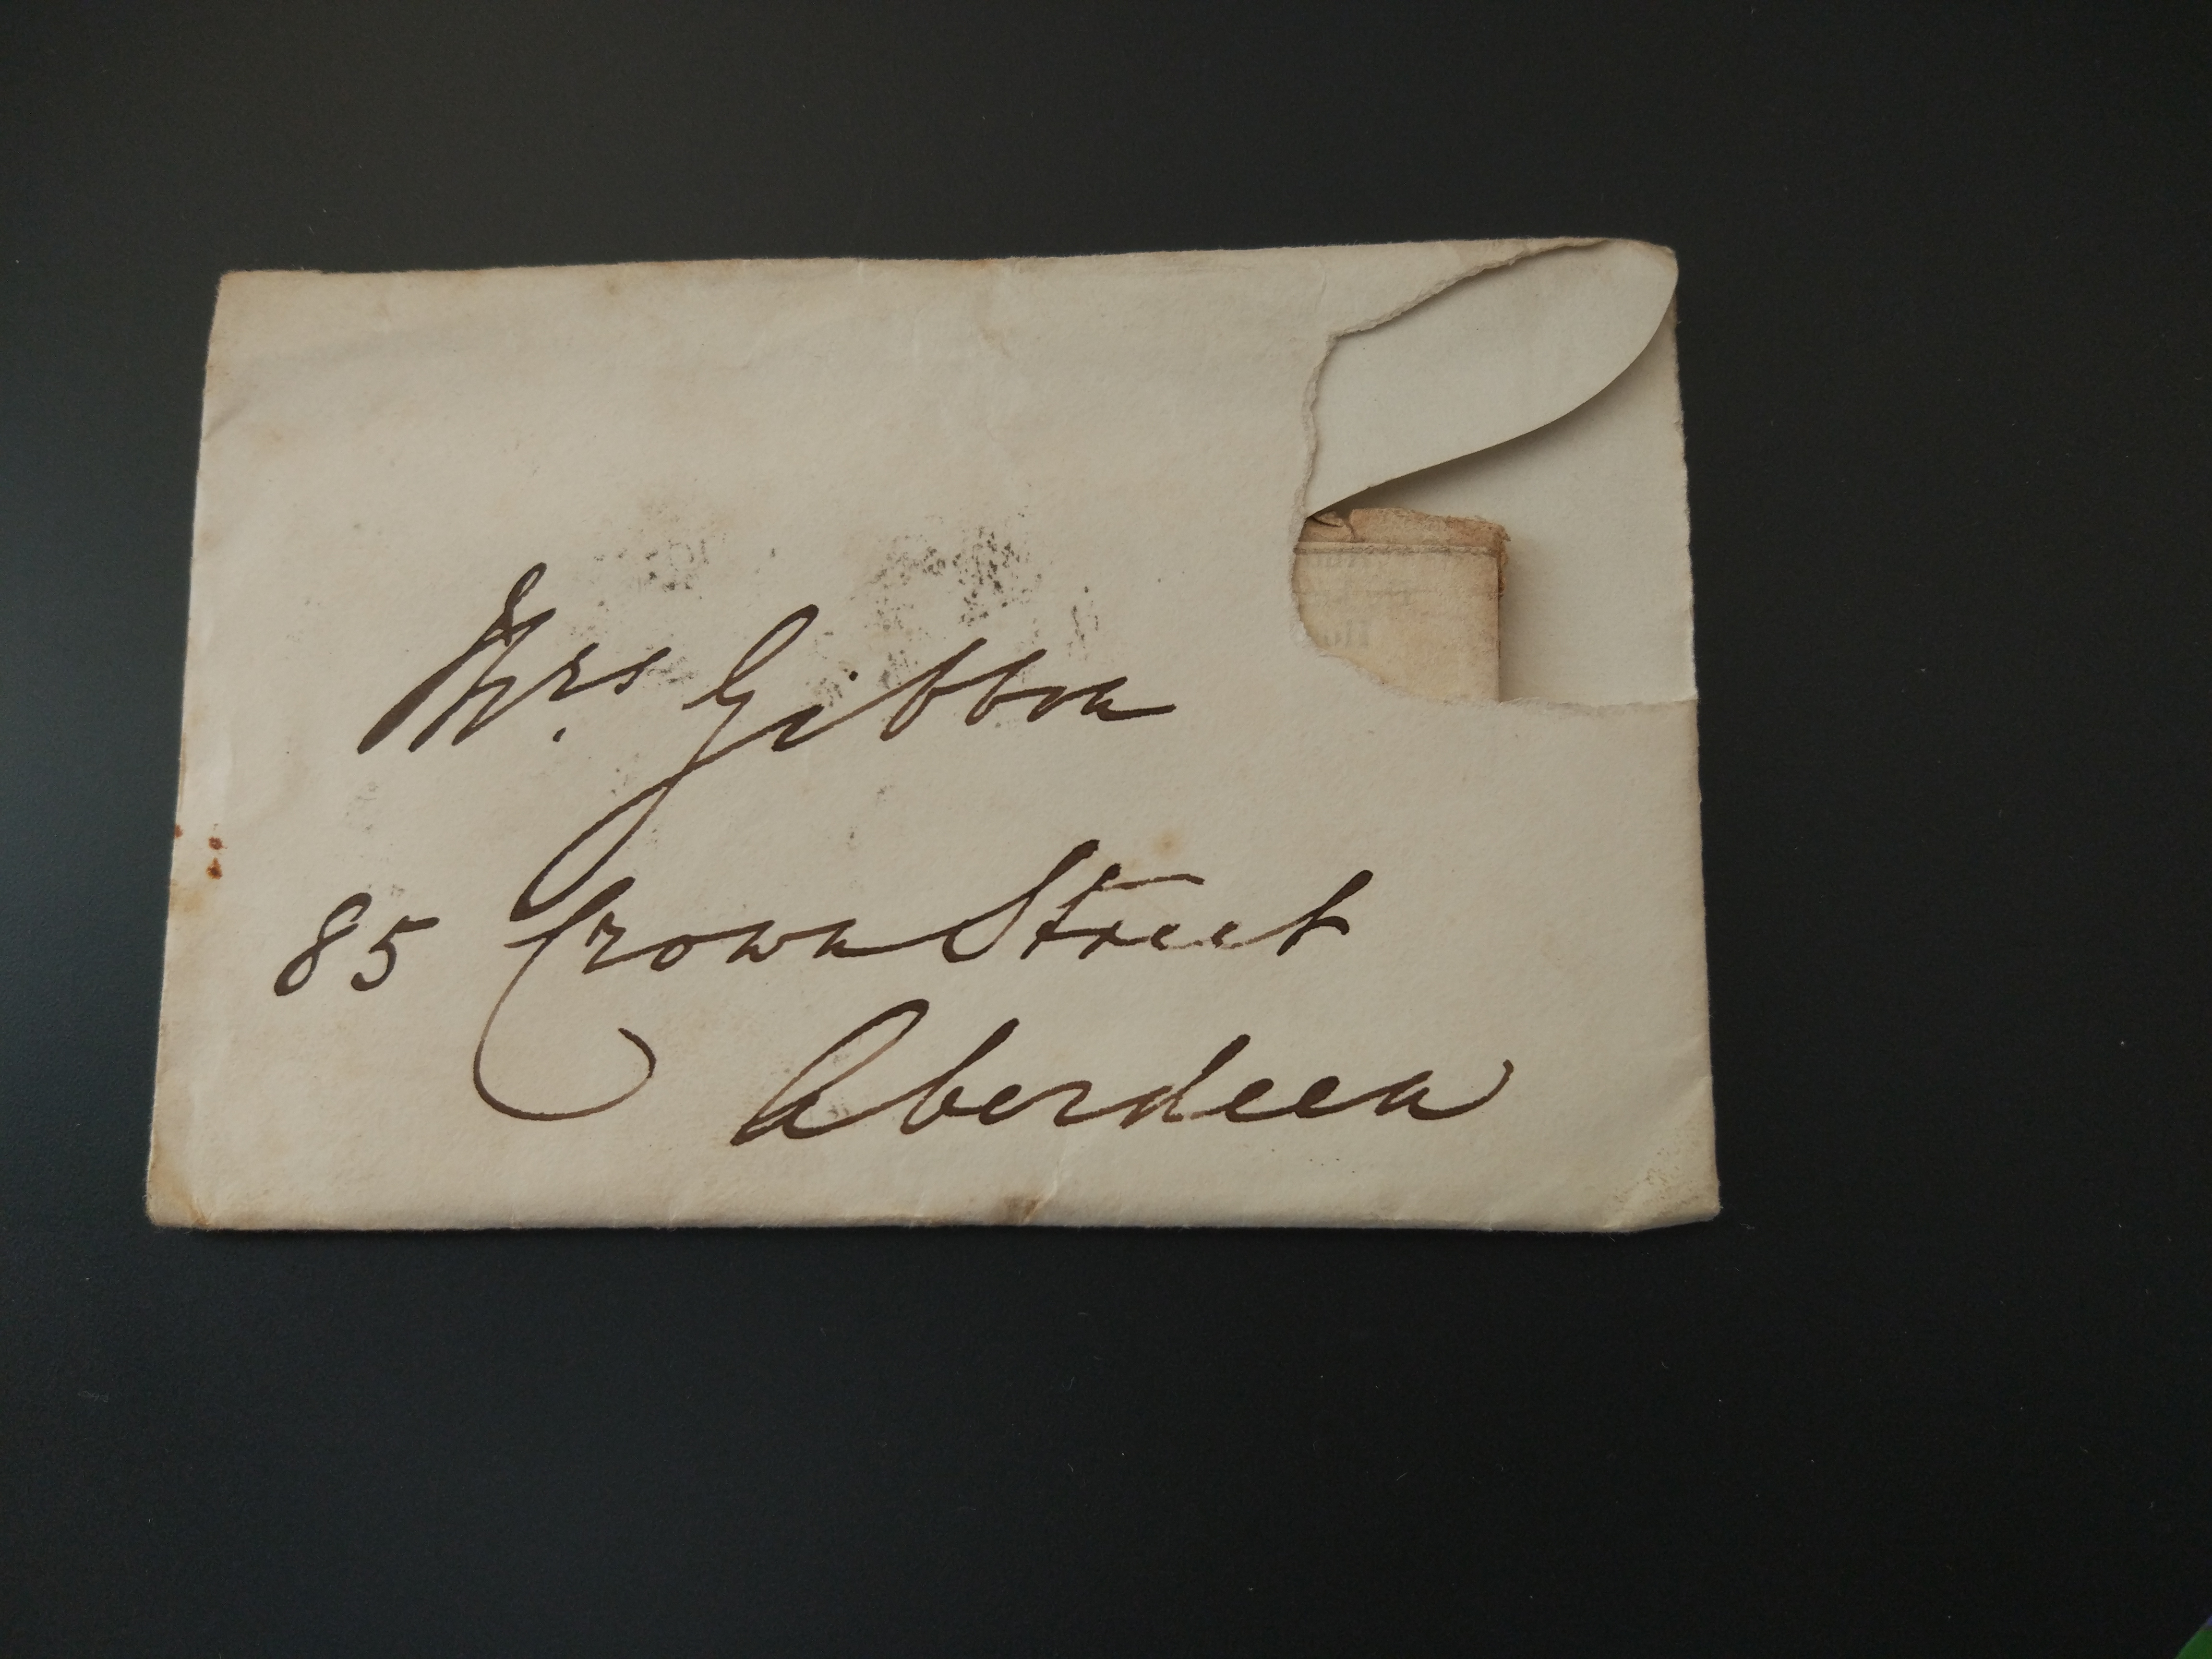 Mrs. Gibbon
85 Crown Street
Aberdeen